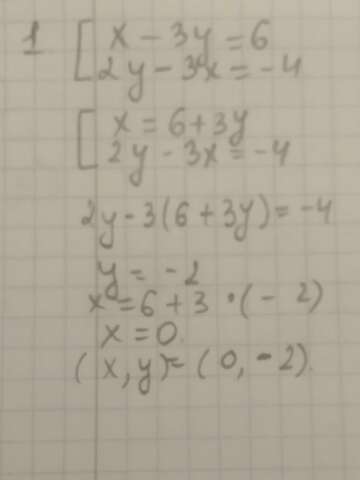 1 [ x - 3y = 6
2y - 3x = -4
[ x = 6 + 3y
2y - 3x = -4
2y - 3(6 + 3y) = -4
y = -2
x = 6 + 3 · (- 2)
x = 0.
(x, y) = (0, -2).